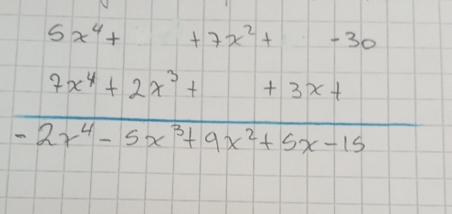 5x⁴+ +7x²+ -30
7x⁴+2x³+ +3x+
-2x⁴-5x³+9x²+5x-15